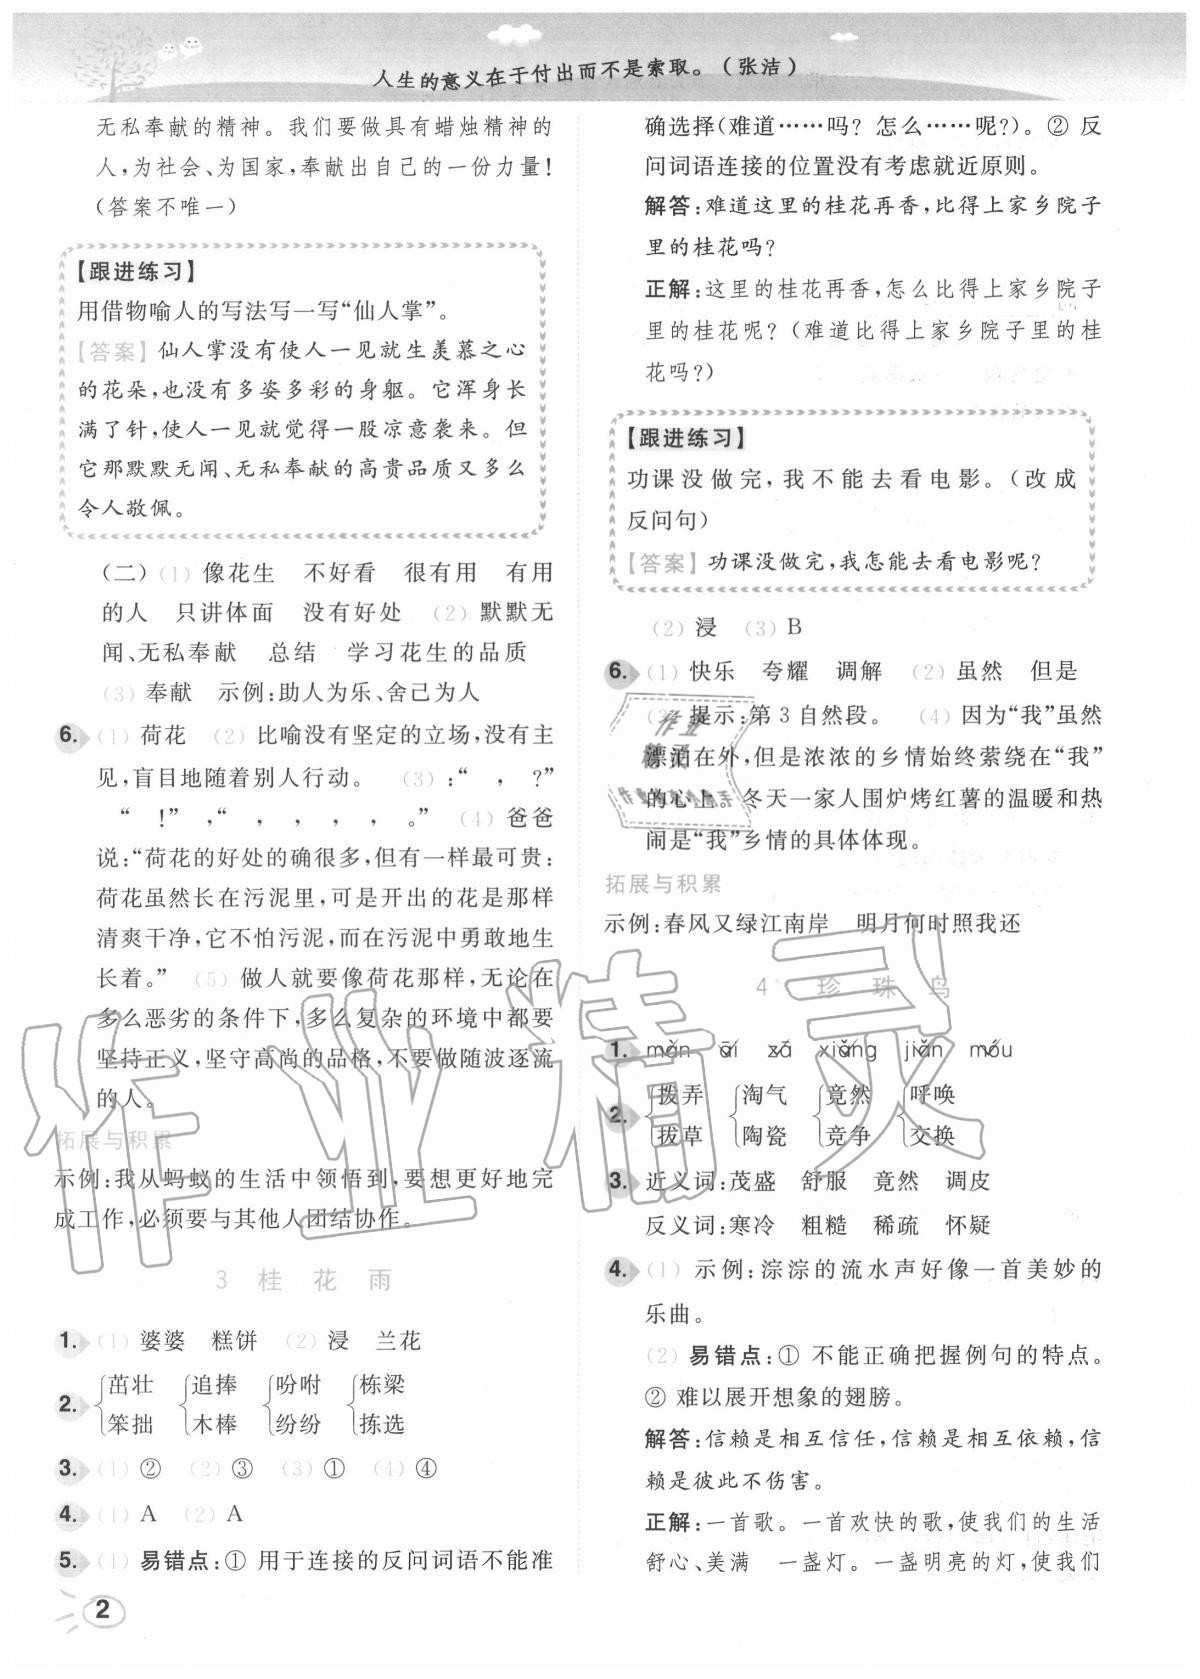 人生的意义在于付出而不是索取。(张洁)
无私奉献的精神。我们要做具有蜡烛精神的
人,为社会、为国家,奉献出自己的一份力量!
(答案不唯一)
【跟进练习】
用借物喻人的写法写一写“仙人掌”。
【答案】仙人掌没有使人一见就生羡慕之心
的花朵,也没有多姿多彩的身躯。它浑身长
满了针,使人一见就觉得一股凉意袭来。但
它那默默无闻、无私奉献的高贵品质又多么
令人敬佩。
(二)(1)像花生 不好看 很有用 有用
的人 只讲体面 没有好处 (2)默默无
闻、无私奉献 总结 学习花生的品质
(3)奉献 示例:助人为乐、舍己为人
6. (1)荷花 (2)比喻没有坚定的立场,没有主
见,盲目地随着别人行动。 (3):“ , ?”
“ !”,“ , , , , 。” (4)爸爸
说:“荷花的好处的确很多,但有一样最可贵:
荷花虽然长在污泥里,可是开出的花是那样
清爽干净,它不怕污泥,而在污泥中勇敢地生
长着。” (5)做人就要像荷花那样,无论在
多么恶劣的条件下,多么复杂的环境中都要
坚持正义,坚守高尚的品格,不要做随波逐流
的人。
拓展与积累
示例:我从蚂蚁的生活中领悟到,要想更好地完
成工作,必须要与其他人团结协作。
3 桂花雨
1. (1)婆婆 糕饼 (2)浸 兰花
2. 茁壮 追捧 吩咐 栋梁
笨拙 木棒 纷纷 拣选
3. (1)② (2)③ (3)① (4)④
4. (1)A (2)A
5. (1)易错点:① 用于连接的反问词语不能准
2
确选择(难道……吗? 怎么……呢?)。② 反
问词语连接的位置没有考虑就近原则。
解答:难道这里的桂花再香,比得上家乡院子
里的桂花吗?
正解:这里的桂花再香,怎么比得上家乡院子
里的桂花呢?(难道比得上家乡院子里的桂
花吗?)
【跟进练习】
功课没做完,我不能去看电影。(改成
反问句)
【答案】功课没做完,我怎能去看电影呢?
(2)浸 (3)B
6. (1)快乐 夸耀 调解 (2)虽然 但是
(3)提示:第3自然段。 (4)因为“我”虽然
漂泊在外,但是浓浓的乡情始终萦绕在“我”
的心上。冬天一家人围炉烤红薯的温暖和热
闹是“我”乡情的具体体现。
拓展与积累
示例:春风又绿江南岸 明月何时照我还
4* 珍珠鸟
1. mǎn āi zá xiǎng jiǎn móu
2. 拨弄 淘气 竟然 呼唤
拔草 陶瓷 竞争 交换
3. 近义词:茂盛 舒服 竟然 调皮
反义词:寒冷 粗糙 稀疏 怀疑
4. (1)示例:淙淙的流水声好像一首美妙的
乐曲。
(2)易错点:① 不能正确把握例句的特点。
② 难以展开想象的翅膀。
解答:信赖是相互信任,信赖是相互依赖,信
赖是彼此不伤害。
正解:一首歌。一首欢快的歌,使我们的生活
舒心、美满 一盏灯。一盏明亮的灯,使我们
作业精灵